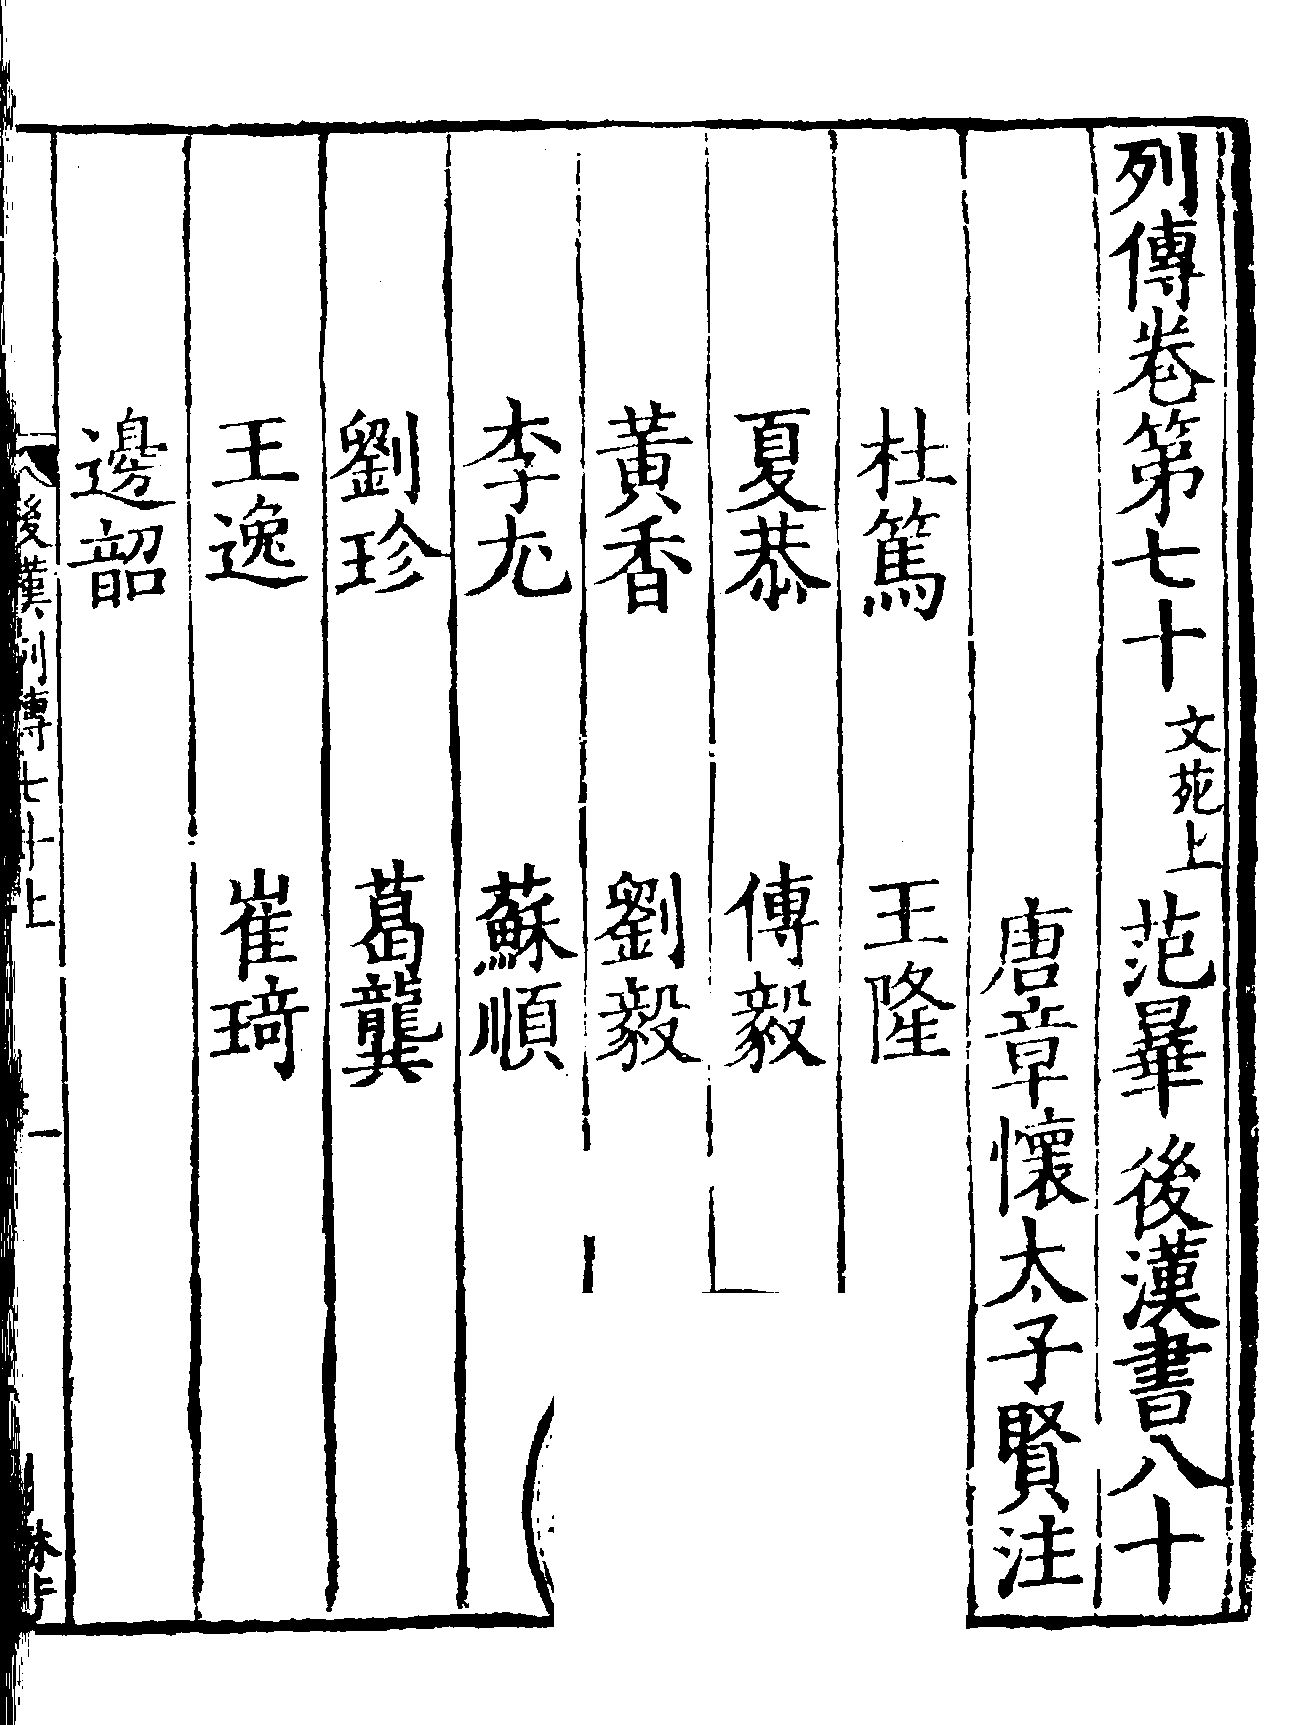 列傳卷第七十 文苑上 范曅 後漢書八十
唐章懷太子賢注
杜篤 王隆
夏恭 傅毅
黃香 劉毅
李尤 蘇順
劉珍 葛龔
王逸 崔琦
邊韶
後漢列傳七十上 一